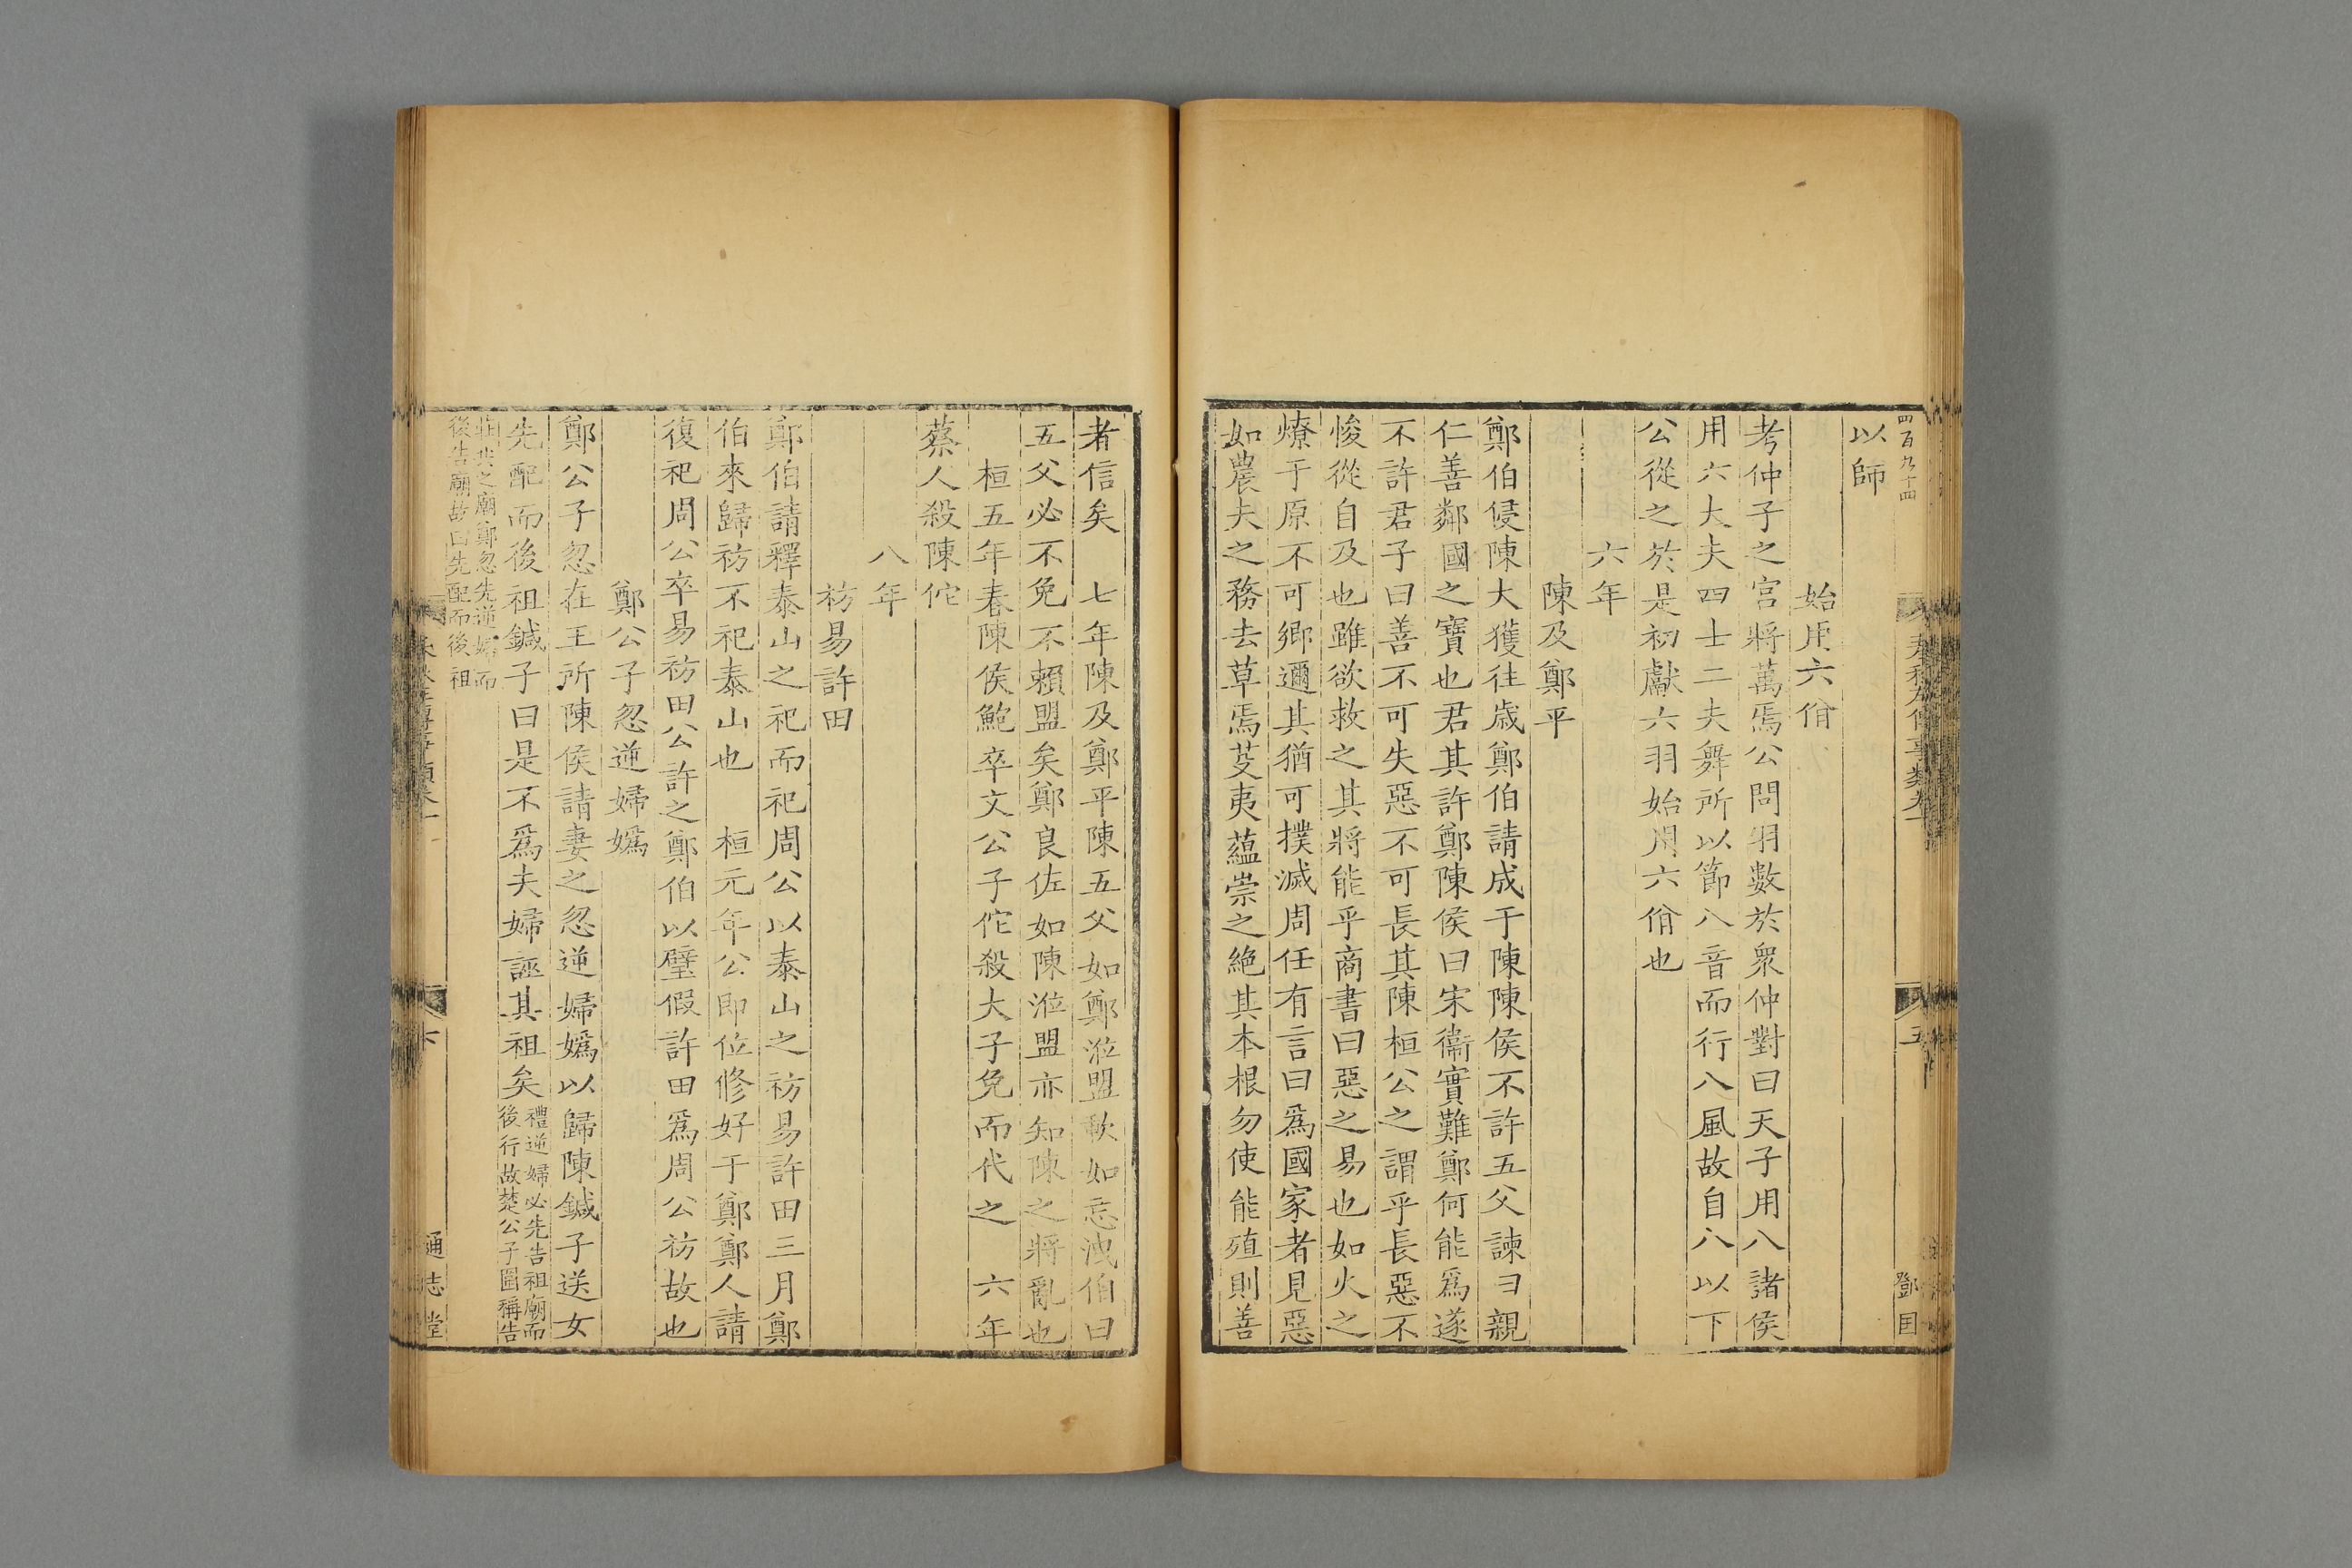 四百九十四
以師
始用六佾
考仲子之宮將萬焉公問羽數於衆仲對曰天子用八諸侯
用六大夫四士二夫舞所以節八音而行八風故自八以下
公從之於是初獻六羽始用六佾也
六年
陳及鄭平
鄭伯侵陳大獲往歳鄭伯請成于陳陳侯不許五父諫曰親
仁善鄰國之寶也君其許鄭陳侯曰宋衞實難鄭何能爲遂
不許君子曰善不可失惡不可長其陳桓公之謂乎長惡不
悛從自及也雖欲救之其將能乎商書曰惡之易也如火之
燎于原不可鄉邇其猶可撲滅周任有言曰爲國家者見惡
如農夫之務去草焉芟夷蘊崇之絶其本根勿使能殖則善
者信矣　七年陳及鄭平陳五父如鄭涖盟歃如忘洩伯曰
五父必不免不賴盟矣鄭良佐如陳涖盟亦知陳之將亂也
桓五年春陳侯鮑卒文公子佗殺大子免而代之　六年
蔡人殺陳佗
八年
祊易許田
鄭伯請釋泰山之祀而祀周公以泰山之祊易許田三月鄭
伯來歸祊不祀泰山也　桓元年公即位修好于鄭鄭人請
復祀周公卒易祊田公許之鄭伯以璧假許田爲周公祊故也
鄭公子忽逆婦嬀
鄭公子忽在王所陳侯請妻之忽逆婦嬀以歸陳鍼子送女
先配而後祖鍼子曰是不爲夫婦誣其祖矣禮逆婦必先告祖廟而
後行故楚公子圍稱告
莊共之廟鄭忽先逆婦而
後告廟故曰先配而後祖
春秋左傳事類卷一
五
鄧国
通志堂